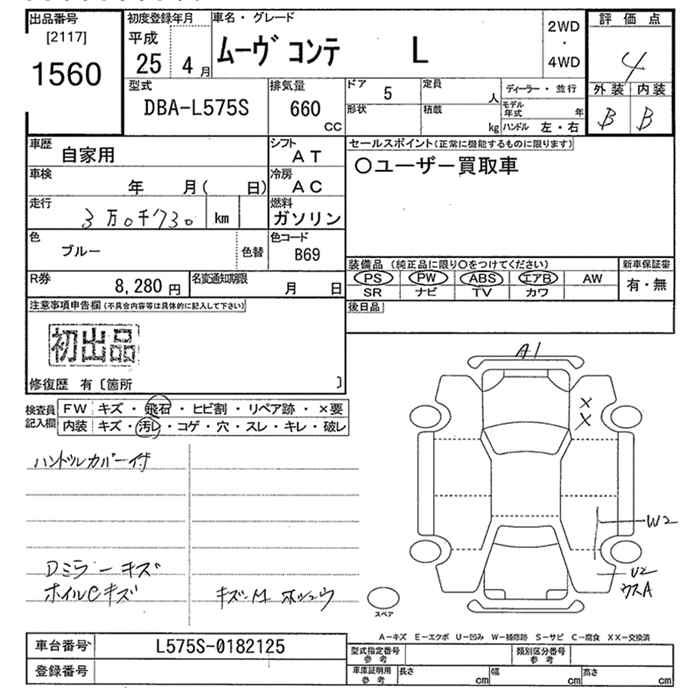 出品番号
[2117]
1560
初度登録年月
平成
25 4月
車名・グレード
ムーヴ コンテ L
2WD
・
4WD
評価点
4
外装 内装
B B
型式
DBA-L575S
排気量
660
CC
ドア 5
形状
定員 人
積載 kg
ディーラー・並行
モデル年式 年
ハンドル 左・右
車歴
自家用
シフト
AT
車検
年 月( 日)
冷房
AC
走行
3万0千730 km
燃料
ガソリン
色
ブルー
色替
色コード
B69
R券
8,280円
名変通知期限
月 日
セールスポイント(正常に機能するものに限ります)
○ユーザー買取車
装備品 (純正品に限り○をつけてください)
PS PW ABS エアB AW
SR ナビ TV カワ
新車保証書
有・無
後日品
注意事項申告欄(不具合内容等は具体的に記入して下さい)
初出品
修復歴 有〔箇所 〕
検査員記入欄
FW キズ・飛石・ヒビ割・リペア跡・×要
内装 キズ・汚レ・コゲ・穴・スレ・キレ・破レ
ハンドルカバー付
Dミラーキズ
ホイルCキズ
キズ・M ホシュウ
A1
×
×
W2
U2
ウスA
スペア
A-キズ E-エクボ U-凹み W-補修跡 S-サビ C-腐食 XX-交換済
車台番号
L575S-0182125
登録番号
型式指定番号
参考
類別区分番号
参考
車庫証明用
参考
長さ cm
幅 cm
高さ cm